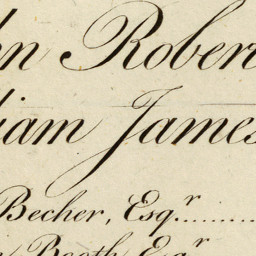 hn Robert
liam James
Becher, Esq.r........
Booth, Esq.r